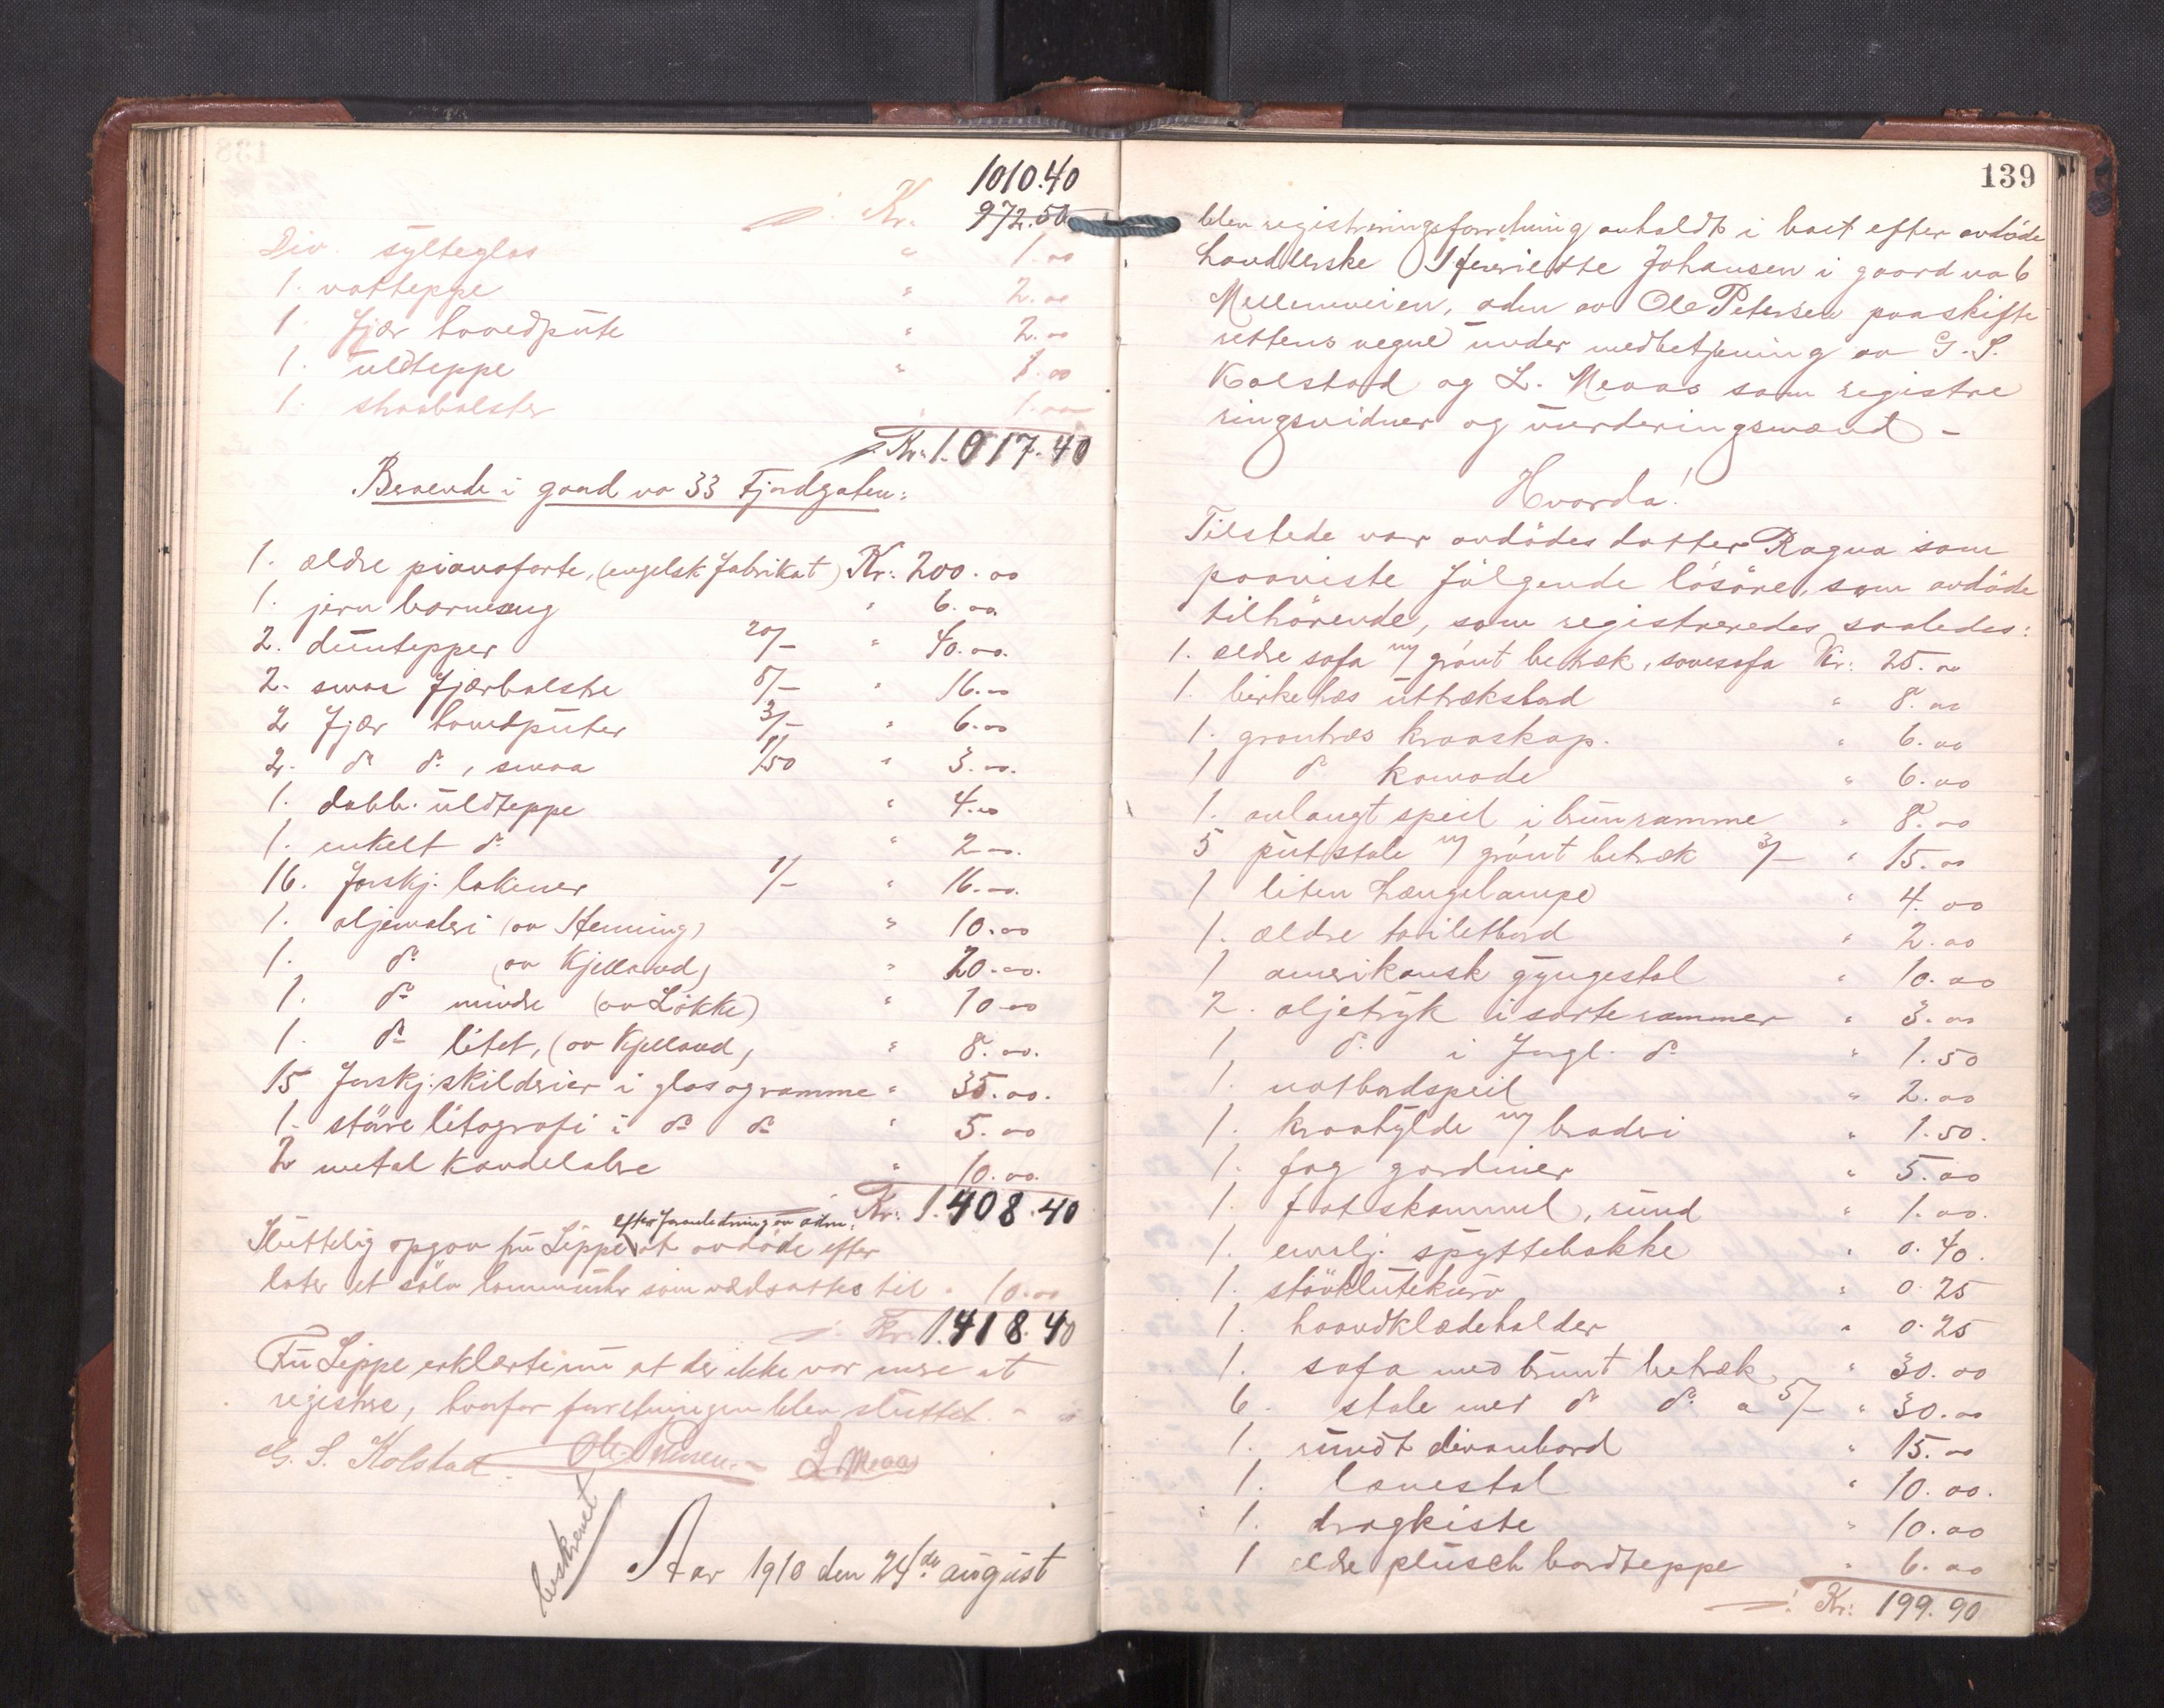 1010.40
Kr. 972.50
Div. sylteglas " 1.00
1. vatteppe " 2.00
1. fjær hovedpute " 2.00
1. uldteppe " 1.00
1. straabolster " 1.00
Kr. 1.017.40
Beroende i gaard no 33 Fjordgaten:
1. ældre pianoforte, (engelsk fabrikat) Kr: 200.00
1. jern barneseng " 6.00
2. duntepper 20/- " 40.00.
2. smaa fjærbolstre 8/- " 16.00
2 fjær hovedputer 3/- " 6.00
2. do do, smaa 1/50 " 3.00.
1. dobb. uldteppe " 4.00
1. enkelt do " 2.00.
16. forskj. lakener 1/- " 16.00.
1. oljemaleri (av Henning) " 10.00
1. do (av Kjelland) " 20.00.
1. do mindre (av Løkke) " 10.00
1. do litet, (av Kjelland) " 8.00.
15 forskj. skilderier i glas og ramme " 35.00.
1. større litografi i do do " 5.00
2 metal kandelabre " 10.00.
Kr: 1.408.40
efter foranledning av adm.
Sluttelig opgav fru Lippe at avdøde efter
later et sølv lommeuhr som værdsattes til " 10.00
Kr. 1.418.40
Fru Lippe erklærte nu at der ikke var mere at
registrere, hvorfor forretningen blev sluttet. -
G. S. Kolstad. Ole Petersen. L. Moaas
beskrevet
Aar 1910 den 24de august
139
blev registreringsforretning avholdt i boet efter avdøde
handlerske Henriette Johansen i gaard no 6
Møllenveien, aden av Ole Petersen paa skifte
rettens vegne under medbetjening av G. S.
Kolstad og L. Moaas som registre
ringsvidner og vurderingsmænd -
Hvorda!
Tilstede var avdødes datter Ragna som
paaviste følgende løsøre, som avdøde
tilhørende, som registreredes saaledes:
1. ældre sofa m/ grønt betræk, sovesofa Kr: 25.00
1. birketræs uttræksbord " 8.00
1. grantræs kraaskap. " 6.00
1 do komode " 6.00
1. avlangt speil i brun ramme " 8.00
5 putstole m/ grønt betræk 3/- " 15.00
1 liten hængelampe " 4.00
1. ældre toiletbord " 2.00
1 amerikansk gyngestol " 10.00
2. oljetryk i sorte rammer " 3.00
1. do i forgl. do " 1.50
1. natbordspeil " 2.00
1. kraahylde m/ broderi " 1.50.
1. fag gardiner " 5.00
1. fotskammel, rund " 1.00.
1. emalj. spyttebakke " 0.40.
1. støvklutekurv " 0.25
1. haandklædeholder " 0.25
1. sofa med brunt betræk " 30.00
6. stole med do do a 5/- " 30.00
1. rundt divanbord " 15.00
1. lænestol " 10.00.
1. dragkiste " 10.00
1 ældre plusch bordteppe " 6.00
Kr: 199.90